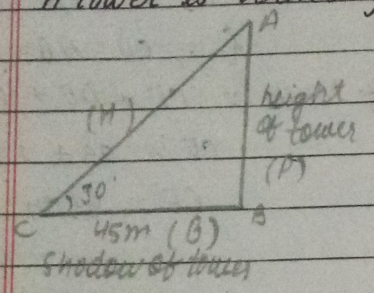 A tower is
A
(H)
height
of tower
(P)
30°
C
45m (B)
B
Shadow of tower